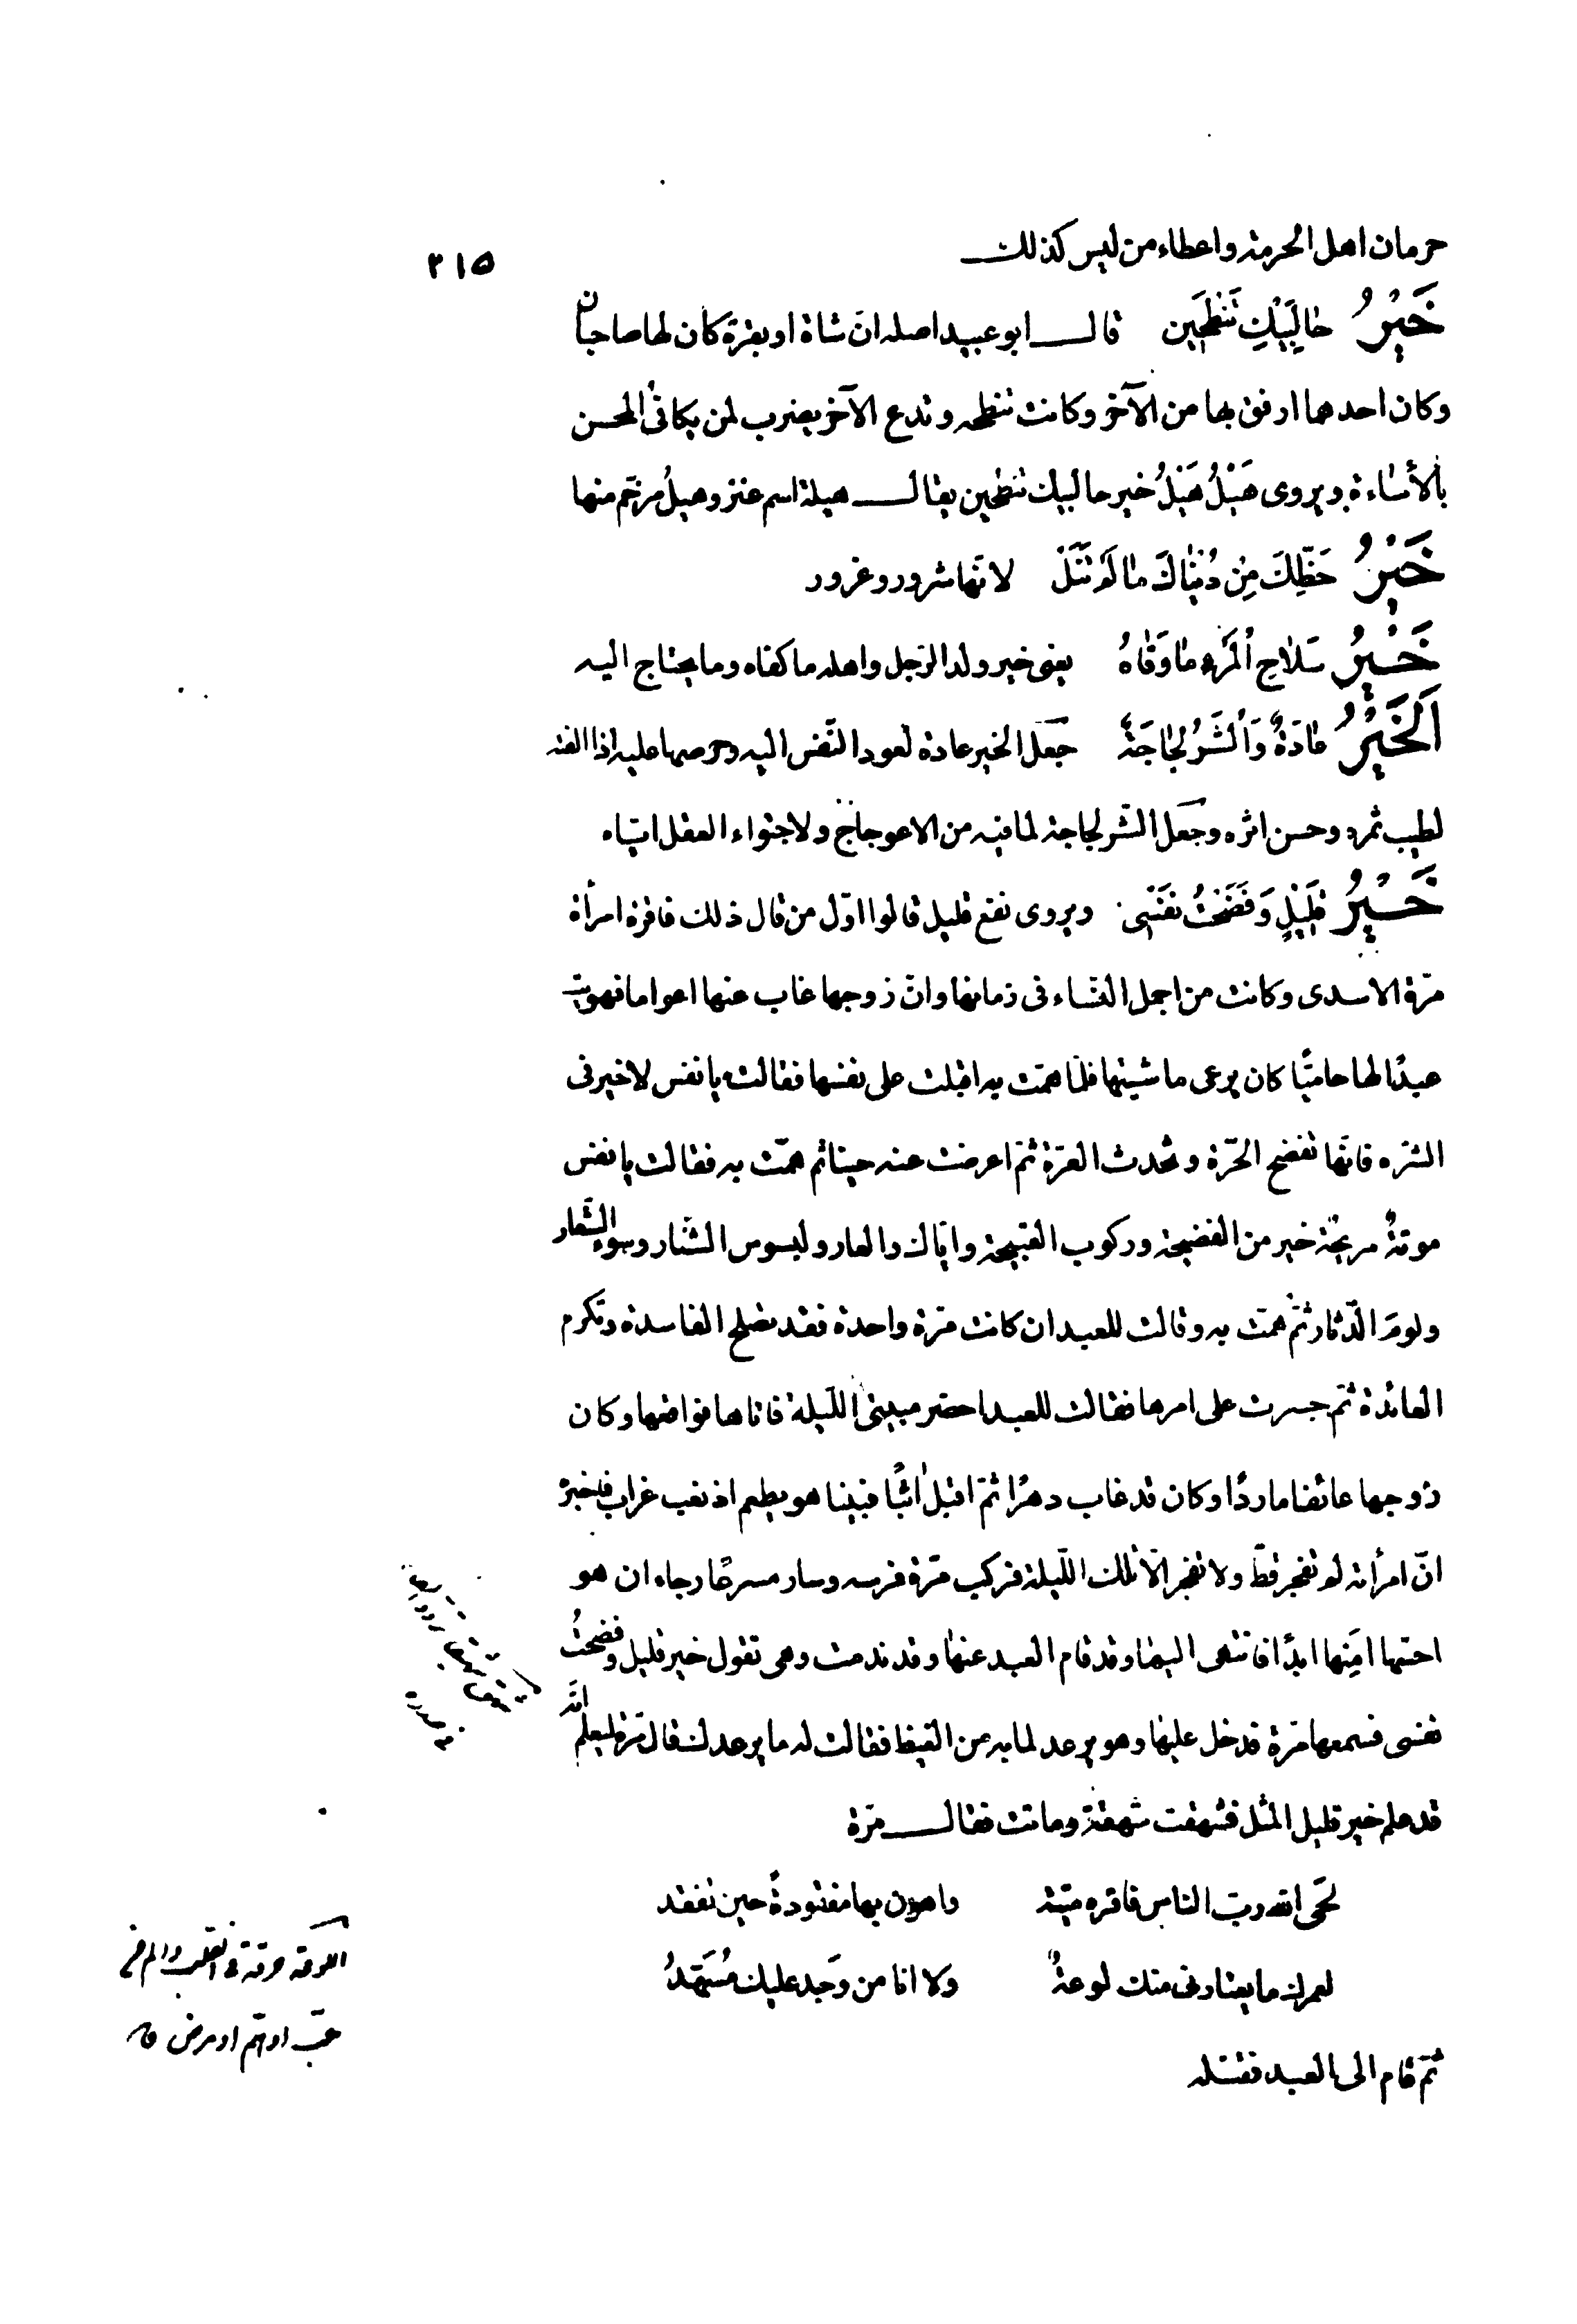 ٢١٥
حرمان اهل الحرمة واعطاء من ليس كذلك
خَيْرُ حَالِبَيْكِ تَنْطَحِين قال ابو عبيد اصله انّ شاة او بقرة كان لها صاحبان
وكان احدهما ارفق بها من الآخر وكانت تنطحه وتدع الآخر يضرب لمن يكافئ المحسن
بالأساءة ويروى هَيْلُ هَيْلُ خير حالبيك تنطحين يقال هيلة اسم عنز وهيلُ مرخّم منها
خَيْرُ حَظِّكَ مِنْ دُنْيَاكَ مَا لَمْ تَنَلْ لانّها شرور وغرور
خَيْرُ سَلَاحِ ٱلْمَرْءِ مَا وَقَاهُ يعنى خير ولد الرّجل واهله ما كفاه وما يحتاج اليه
اَلْخَيْرُ عَادَةٌ وَٱلْشَرُّ لَجَاجَةٌ جَعَل الخير عادة لعود النّفس اليه وحرصها عليه اذا الفته
لطيب ثمره وحسن اثره وجَعَل الشّر لجاجة لما فيه من الاعوجاج ولاجتواء العقل ايّاه
خَيْرُ قَلِيْلٍ وَفَضَحْتُ نَفْسِى ويروى نفع قليل قالوا اوّل من قال ذلك فاقرة امرأة
مرّة الاسدى وكانت من اجمل النّساء فى زمانها وانّ زوجها غاب عنها اعواما فهويت
عبدًا لها حاميًّا كان يرعى ماشيتها فلمّا همّت به اقبلت على نفسها فقالت يا نفس لا خير فى
الشّره فانّها تفضح الحرّة وتحدث العرّة ثمّ اعرضت عنه حينا ثم همّت به فقالت يا نفس
موتةٌ مريحة خير من الفضيحة وركوب القبيحة وايّاك والعار ولبوس الشّنار وسوء الشّعار
ولوم الدّثار ثمّ همّت به وقالت للعبد ان كانت مرّة واحدة فقد تصلح الفاسدة وتكرم
العائدة ثمّ جسرت على امرها فقالت للعبد احضر مبيتى اللّيلة فاتاها فواقعها وكان
زوجها عائفا ماردًا وكان قد غاب دهرًا ثمّ اقبل آئبًا فبينا هو يطعم اذ نعب غراب فاخبره
انّ امرأته لم تفجر قطّ ولا تفجر الّا تلك اللّيلة فركب مرّة فرسه وسار مسرعًا رجاء ان هو
احسّها امِنَها ابدًا فانتهى اليها وقد قام العبد عنها وقد ندمت وهى تقول خير قليل وفضحتُ
نفسى فسمعها مرّة فدخل عليها وهو يرعد لما به من الغيظ فقالت له ما يرعدك فقال مرّة ليعلم انّه
قد علم خير قليل المثل فشهقت شهقة وماتت فقال مرّة
لحَى الله ربّ الناس فاقرة ميتة واهون بها مفقودةً حين تفقد
لعمرك ما يعتادنى منك لوعةٌ ولا انا من وَجد عليك مُسَهَّدُ
ثمّ قام الى العبد فقتله
اللوعة حرقة فى القلب والم من
حبّ او همّ او مرض ق